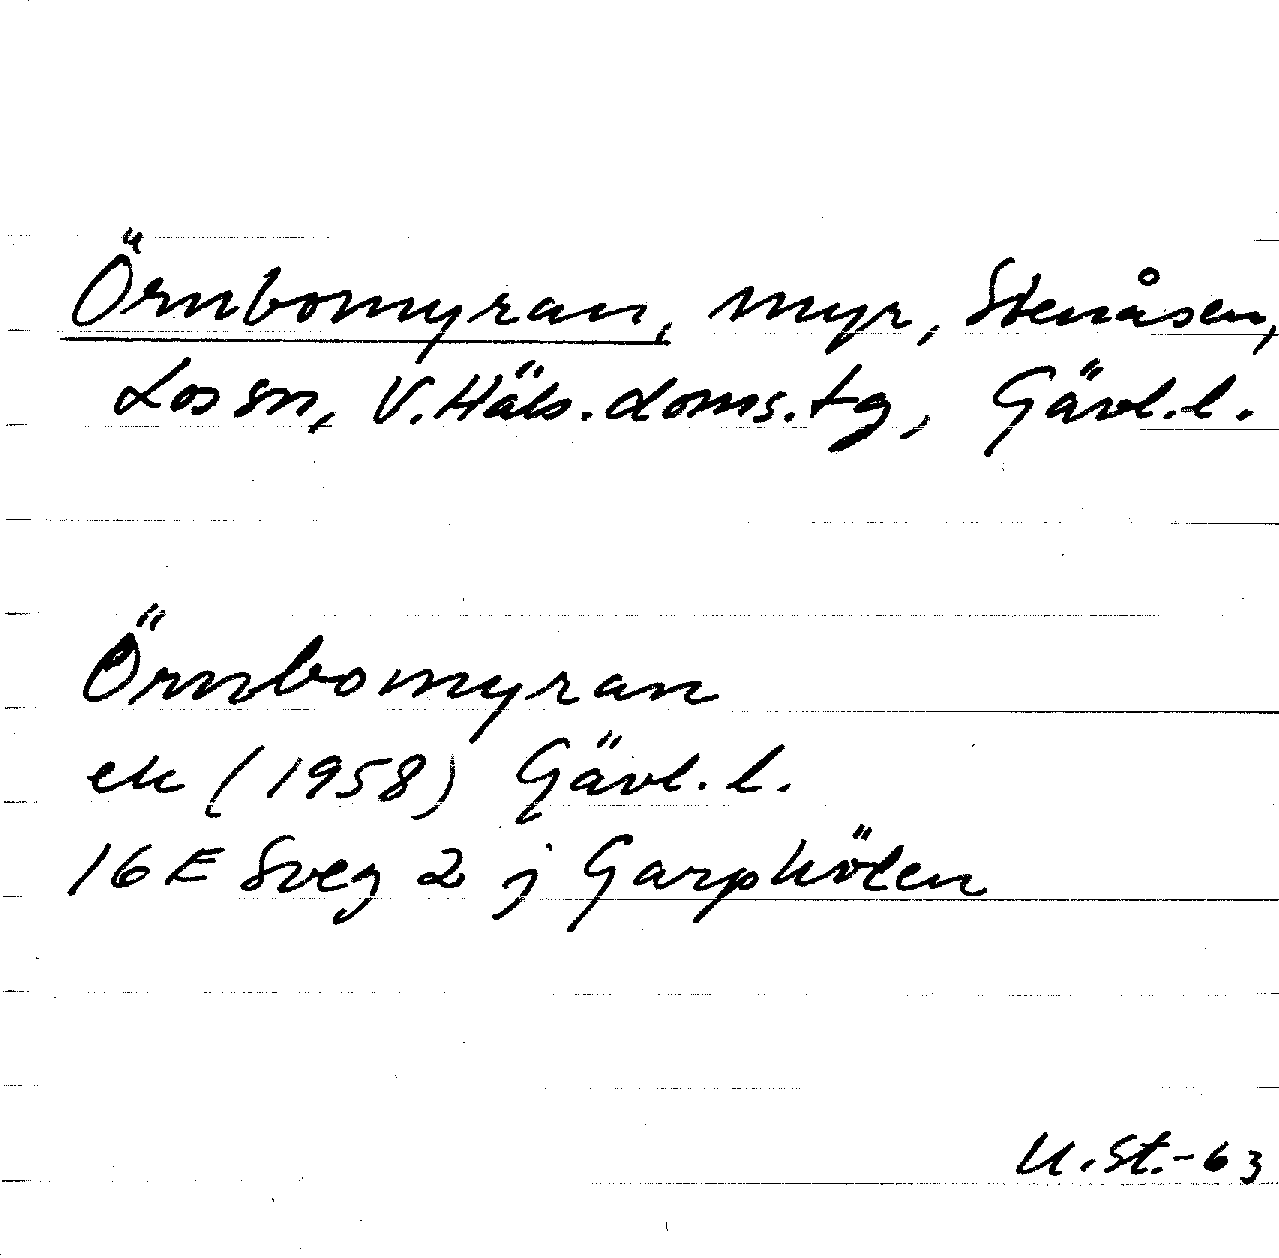 Örnbomyran, myr, Stenåsen,
Los sn, V. Häls. doms. tg, Gävl. l.
Örnbomyran
ek (1958) Gävl. l.
16 E Sveg 2 j Garpkölen
U. St. -63